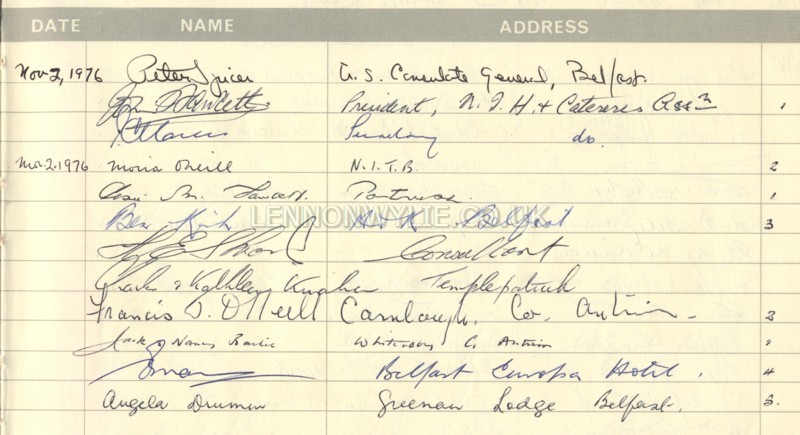 DATE NAME ADDRESS
Nov 2, 1976 Peter Spicer U.S. Consulate General, Belfast.
John D Fawcett President, N.I.H. & Caterers Assn 1
Secretary do.
Nov. 2. 1976 Moria O'Neill N.I.T.B. 2
M. Fawcett. Portrush. 1
Ben Kirk Belfast 3
LENNONWYLIE.CO.UK
Consultant
Charles & Kathleen Templepatrick
Francis D. O'Neill Carnlough, Co. Antrim - 3
Jack & Nancy Whiteabbey Co Antrim
Belfast Europa Hotel. 4
Angela Drumm Greenan Lodge Belfast. 3.